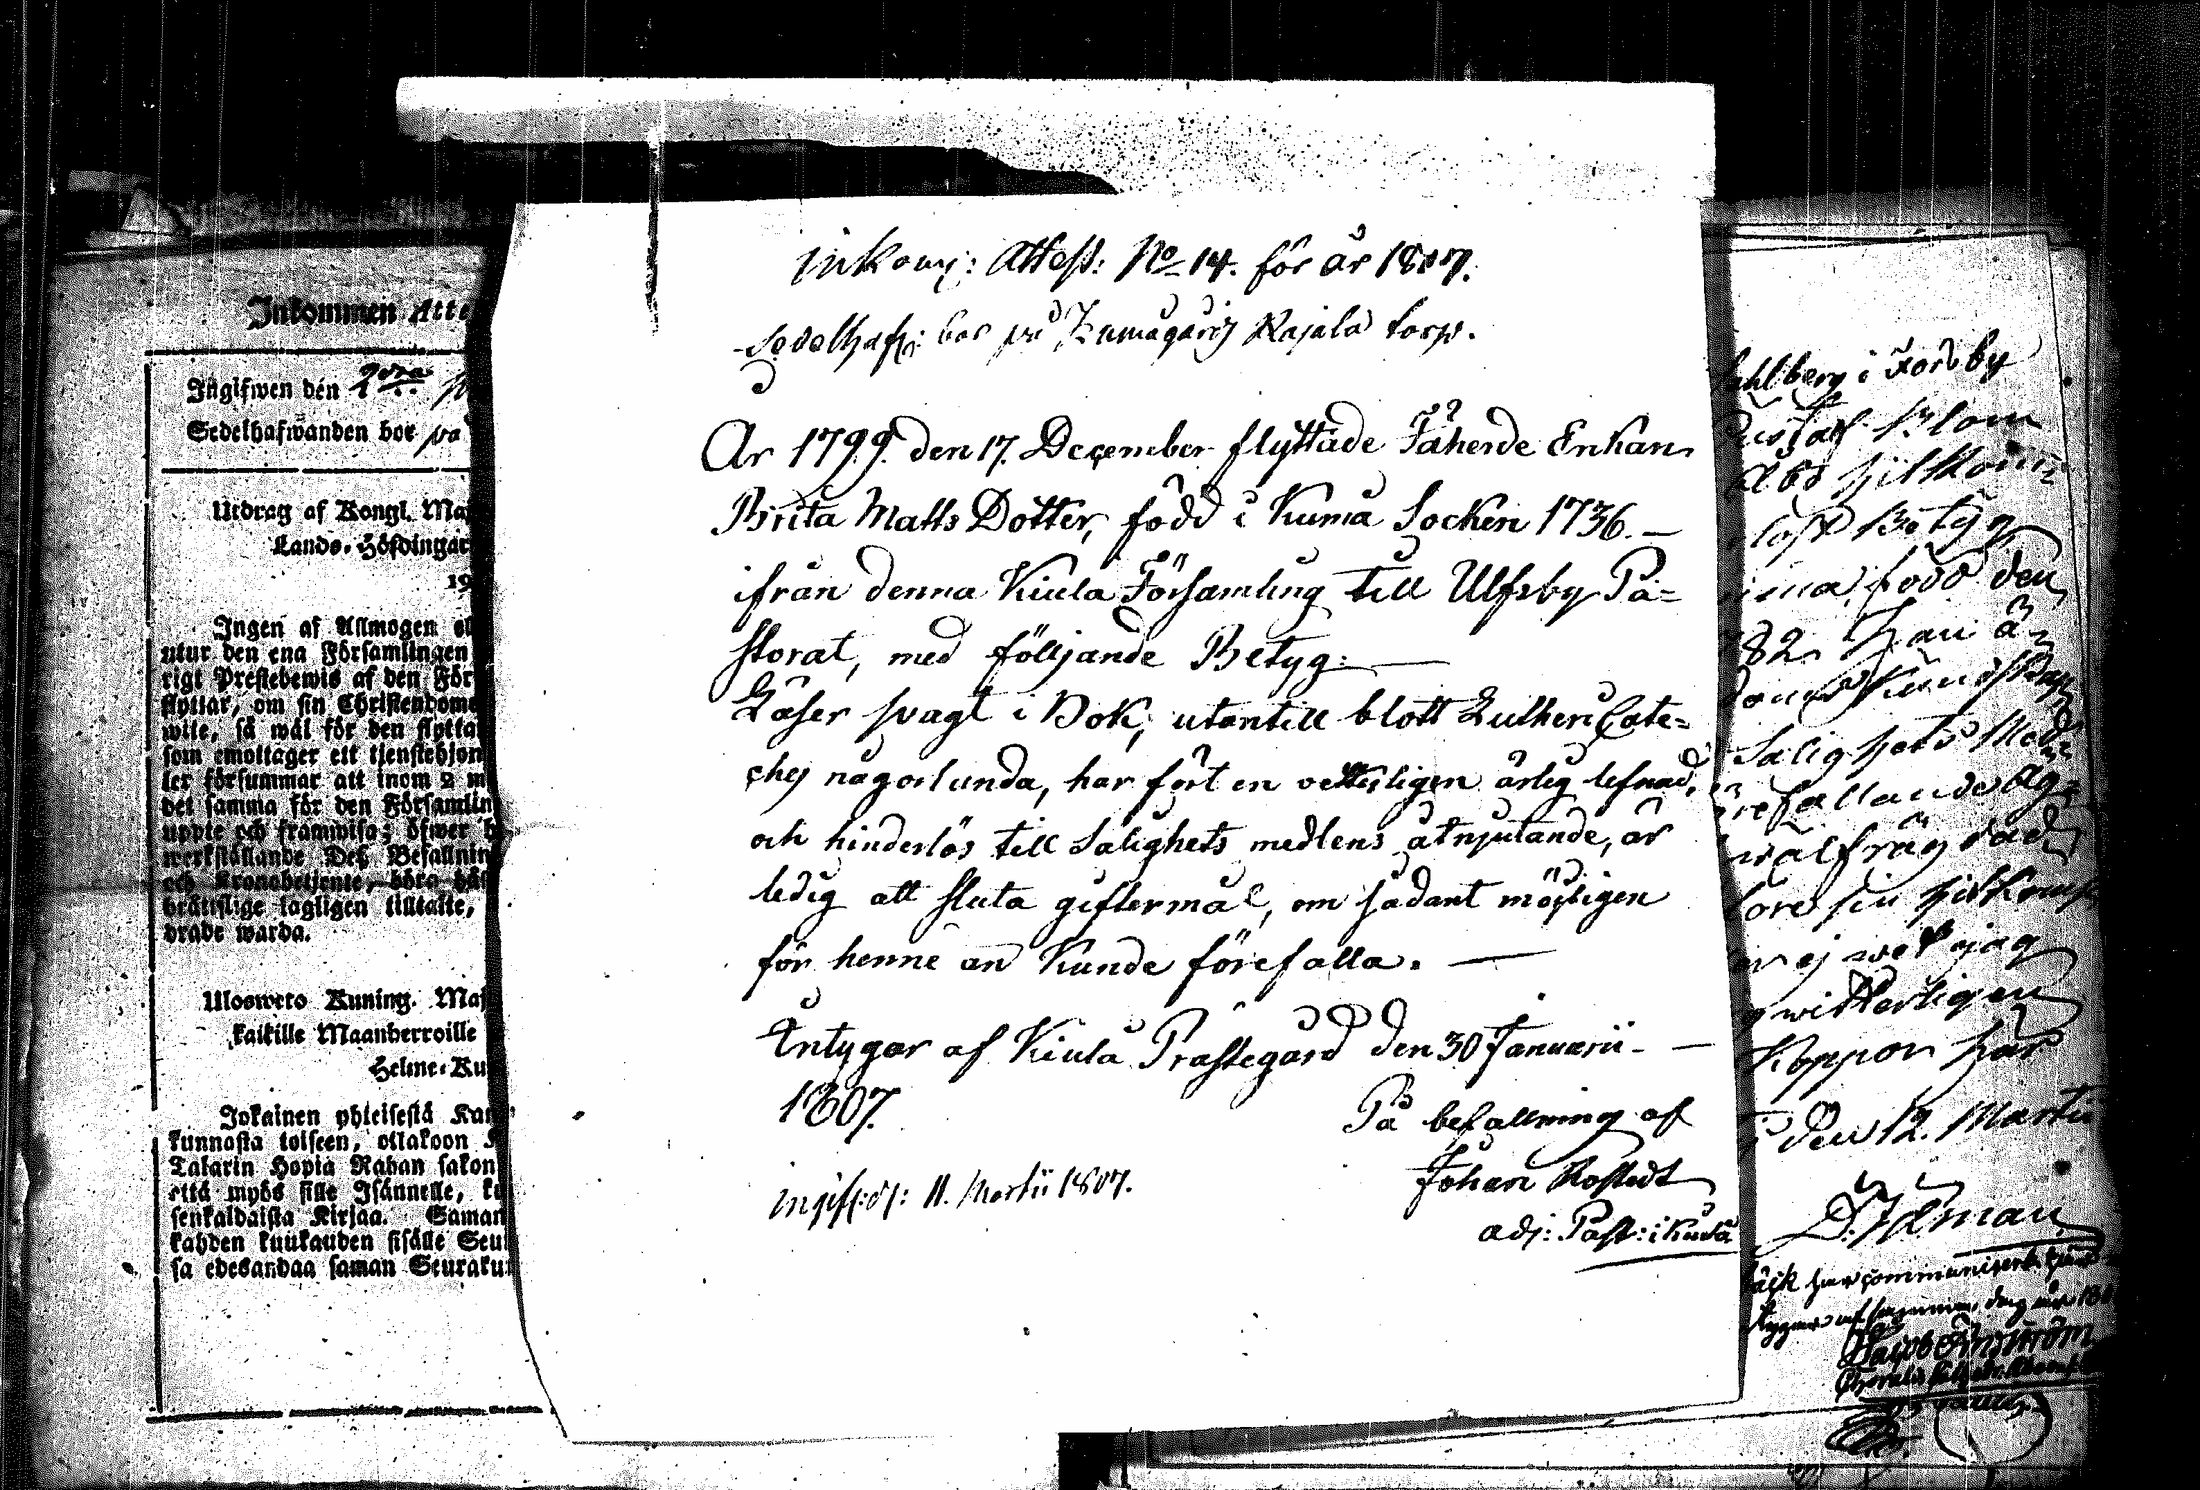 Inkom: Attest: No 14. för år 1807.
Sedelhafv: bor på Lumagårds Rajala torp.
År 1799. den 17. December flyttade Fäherde Enkan
Brita Matts Dotter, född i Kumå Socken 1736. —
ifrån denna Kiula Församling till Ulfsby Pa=
storat, med följjande Betyg: —
Läser svagt i Bok, utantill blott Lutheri Cate=
chej någorlunda, har fört en vetterligen ärlig lefnad,
och hinderlös till Salighets medlens åtnjutande, är
ledig att sluta giftermål, om sådant möjligen
för henne än Kunde förefalla. —
Intygar af Kiula Prästegård den 30 Januarii —
1807.
På befallning af
Johan Rostedt
adj: Past: i Kiula
ingifv: d: 11. Martii 1807.
Inkommen Atte
Ingifwen den 2dra
Sedelhafwanden bor på
Utdrag af Kongl. Maj
Lands-Höfdingar
19
Ingen af Allmogen el
utur den ena Församlingen
rigt Prestebewis af den För
flyttar, om sin Christendoms
wite, så wäl för den flytta
som emottager ett tjenstehjon
ler försummar att inom 2 m
det samma för den Församlin
uppte och framwisa; öfwer h
werkställande Deß Befallnin
och Kronobetjente, böra hås
bråttslige lagligen tilltalte,
drade warda.
Uloswedto Kuning. Maj
kaikille Maanherroille
Helme-Ku
Jokainen yhteisestä Kan
kunnasta toiseen, ottakoon
Talarin Hopia Rahan sakon
että myös sille Isännelle, ku
senkaldaista Kirjaa. Saman
kahden kuukauden sisälle Seu
sa edesandaa saman Seuraku
ahlberg i Forsby
Gustaf Blom
född den
82. Han är
Salighets Med
förefallande
den 12. Martii
D. Idman
har communicerat